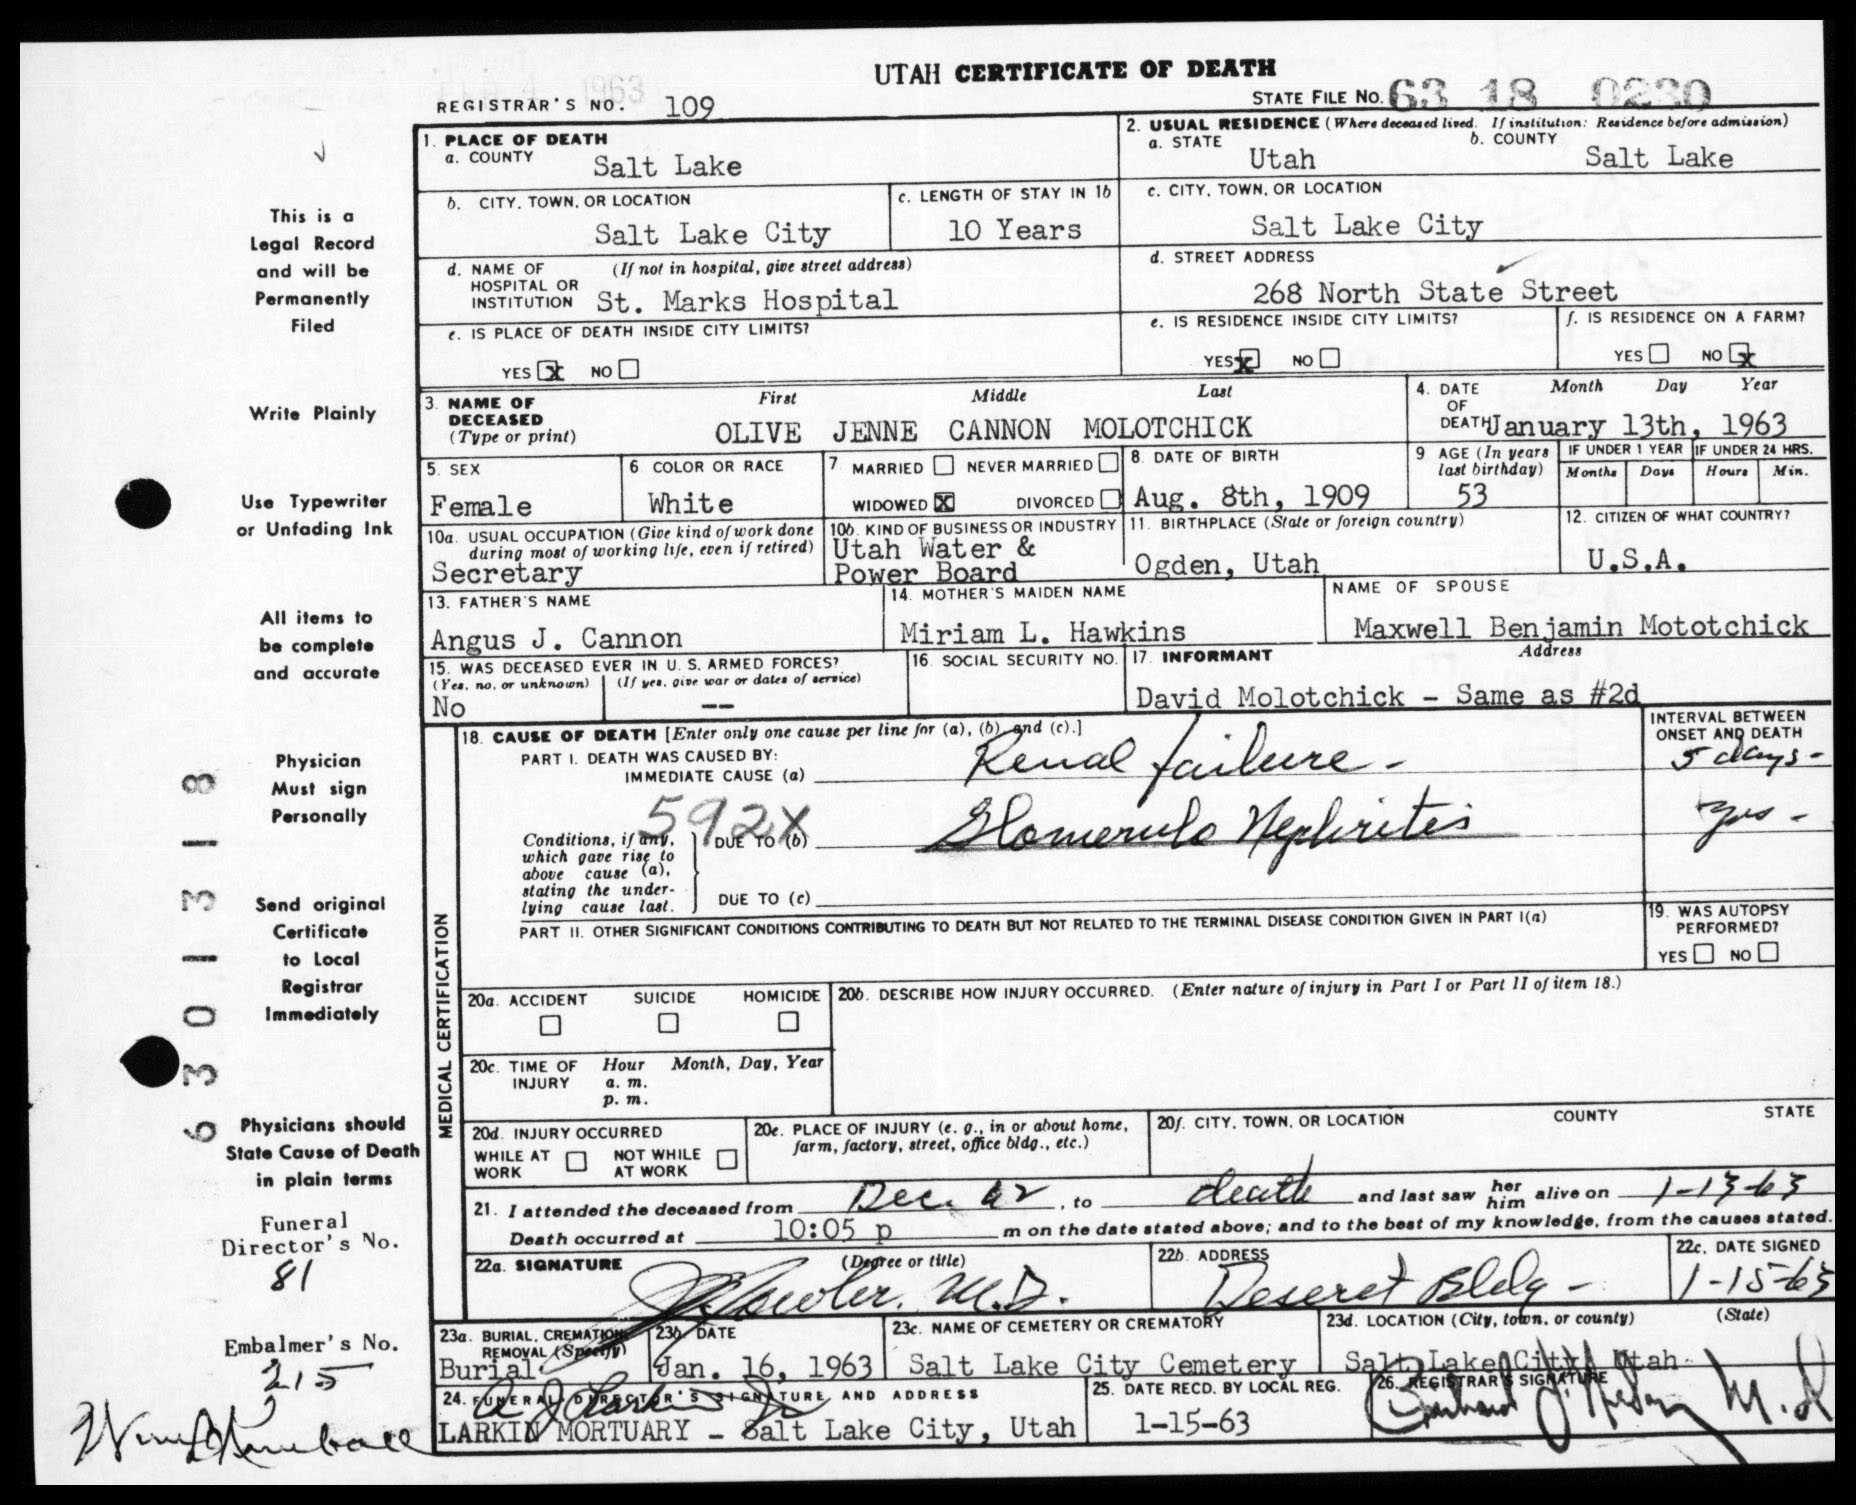 UTAH CERTIFICATE OF DEATH
REGISTRAR'S NO. 109
STATE FILE NO. 63 18 0230
1. PLACE OF DEATH
a. COUNTY Salt Lake
2. USUAL RESIDENCE (Where deceased lived. If institution: Residence before admission)
a. STATE Utah b. COUNTY Salt Lake
b. CITY, TOWN, OR LOCATION Salt Lake City
c. LENGTH OF STAY IN 1b 10 Years
c. CITY, TOWN, OR LOCATION Salt Lake City
d. NAME OF HOSPITAL OR INSTITUTION (If not in hospital, give street address)
St. Marks Hospital
d. STREET ADDRESS
268 North State Street
e. IS PLACE OF DEATH INSIDE CITY LIMITS?
YES X NO
e. IS RESIDENCE INSIDE CITY LIMITS?
YES X NO
f. IS RESIDENCE ON A FARM?
YES NO X
3. NAME OF DECEASED (Type or print)
First Middle Last
OLIVE JENNE CANNON MOLOTCHICK
4. DATE OF DEATH Month Day Year
January 13th, 1963
5. SEX
Female
6. COLOR OR RACE
White
7. MARRIED NEVER MARRIED
WIDOWED X DIVORCED
8. DATE OF BIRTH
Aug. 8th, 1909
9 AGE (In years last birthday)
53
IF UNDER 1 YEAR
Months Days
IF UNDER 24 HRS.
Hours Min.
10a. USUAL OCCUPATION (Give kind of work done during most of working life, even if retired)
Secretary
10b. KIND OF BUSINESS OR INDUSTRY
Utah Water &
Power Board
11. BIRTHPLACE (State or foreign country)
Ogden, Utah
12. CITIZEN OF WHAT COUNTRY?
U.S.A.
13. FATHER'S NAME
Angus J. Cannon
14. MOTHER'S MAIDEN NAME
Miriam L. Hawkins
NAME OF SPOUSE
Maxwell Benjamin Mototchick
15. WAS DECEASED EVER IN U. S. ARMED FORCES?
(Yes, no, or unknown) (If yes, give war or dates of service)
No --
16. SOCIAL SECURITY NO.
17. INFORMANT Address
David Molotchick - Same as #2d
MEDICAL CERTIFICATION
18. CAUSE OF DEATH [Enter only one cause per line for (a), (b) and (c).]
INTERVAL BETWEEN ONSET AND DEATH
PART I. DEATH WAS CAUSED BY:
IMMEDIATE CAUSE (a) Renal failure - 5 days -
592X
Conditions, if any, which gave rise to above cause (a), stating the underlying cause last.
DUE TO (b) Glomerulo Nephritis yrs -
DUE TO (c)
PART II. OTHER SIGNIFICANT CONDITIONS CONTRIBUTING TO DEATH BUT NOT RELATED TO THE TERMINAL DISEASE CONDITION GIVEN IN PART I(a)
19. WAS AUTOPSY PERFORMED?
YES NO
20a. ACCIDENT SUICIDE HOMICIDE
20b. DESCRIBE HOW INJURY OCCURRED. (Enter nature of injury in Part I or Part II of item 18.)
20c. TIME OF INJURY Hour Month, Day, Year
a. m.
p. m.
20d. INJURY OCCURRED
WHILE AT WORK NOT WHILE AT WORK
20e. PLACE OF INJURY (e. g., in or about home, farm, factory, street, office bldg., etc.)
20f. CITY, TOWN, OR LOCATION COUNTY STATE
21. I attended the deceased from Dec. 62, to death and last saw her him alive on 1-13-63
Death occurred at 10:05 p m on the date stated above; and to the best of my knowledge, from the causes stated.
22a. SIGNATURE (Degree or title)
M.D.
22b. ADDRESS
Deseret Bldg -
22c. DATE SIGNED
1-15-63
23a. BURIAL, CREMATION, REMOVAL (Specify)
Burial
23b. DATE
Jan. 16, 1963
23c. NAME OF CEMETERY OR CREMATORY
Salt Lake City Cemetery
23d. LOCATION (City, town, or county) (State)
Salt Lake City, Utah
24. FUNERAL DIRECTOR'S SIGNATURE AND ADDRESS
LARKIN MORTUARY - Salt Lake City, Utah
25. DATE RECD. BY LOCAL REG.
1-15-63
26. REGISTRAR'S SIGNATURE
M.D.
This is a
Legal Record
and will be
Permanently
Filed
Write Plainly
Use Typewriter
or Unfading Ink
All items to
be complete
and accurate
Physician
Must sign
Personally
Send original
Certificate
to Local
Registrar
Immediately
Physicians should
State Cause of Death
in plain terms
Funeral
Director's No.
81
Embalmer's No.
215
6 3 0 1 3 1 8